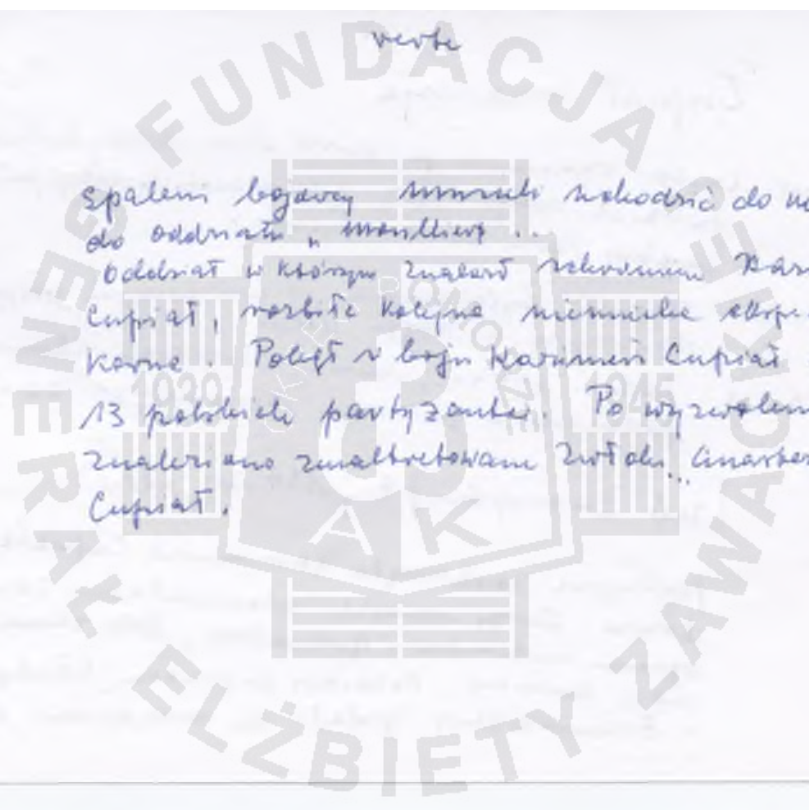 verte
Spaleni bojowcy musieli uchodzić do
do oddziału "
Oddział w którym znalazł schronienie
Cupiał, rozbiła kolejna niemiecka
karna. Poległ w boju Kazimierz Cupiał
13 polskich partyzantów. Po wyzwoleniu
znaleziono zmaltretowane zwłoki
Cupiał.
FUNDACJA GENERAŁ ELŻBIETY ZAWACKIEJ
1939 1945
AK